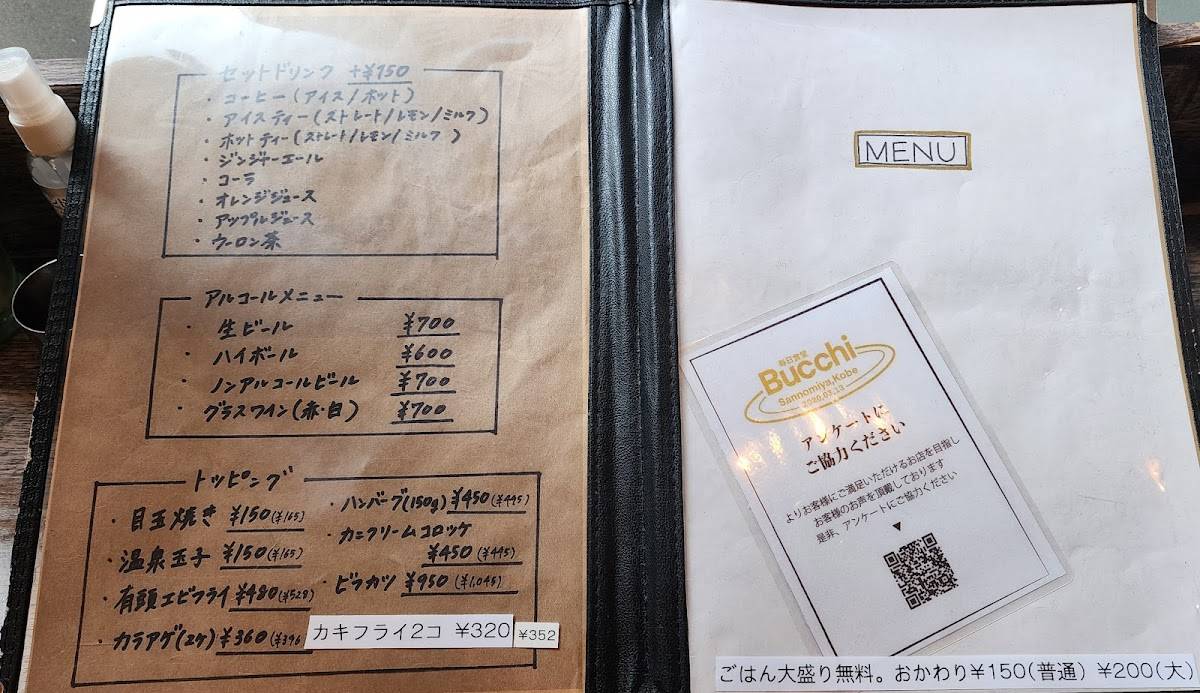 セットドリンク +¥150
・コーヒー(アイス/ホット)
・アイスティー(ストレート/レモン/ミルク)
・ホットティー(ストレート/レモン/ミルク)
・ジンジャーエール
・コーラ
・オレンジジュース
・アップルジュース
・ウーロン茶
アルコールメニュー
・生ビール ¥700
・ハイボール ¥600
・ノンアルコールビール ¥700
・グラスワイン(赤・白) ¥700
トッピング
・目玉焼き ¥150(¥165)
・温泉玉子 ¥150(¥165)
・有頭エビフライ ¥480(¥528)
・カラアゲ(2ケ) ¥360(¥396
・ハンバーグ(150g) ¥450(¥495)
・カニクリームコロッケ
¥450(¥495)
・ビフカツ ¥950(¥1,045)
カキフライ2コ ¥320 ¥352
MENU
毎日食堂
Bucchi
Sannomiya,Kobe
2020.03.13
アンケートに
ご協力ください
よりお客様にご満足いただけるお店を目指し
お客様のお声を頂戴しております
是非、アンケートにご協力ください
▼
ごはん大盛り無料。おかわり¥150(普通) ¥200(大)